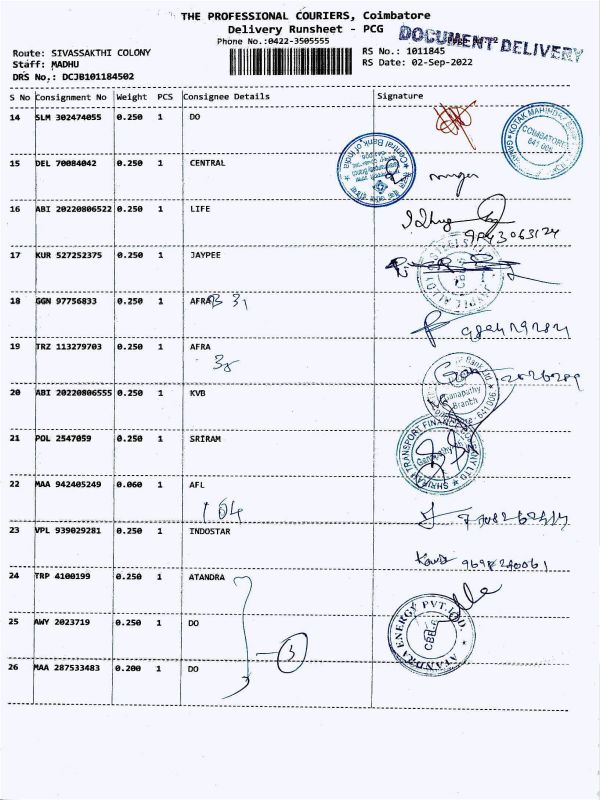 THE PROFESSIONAL COURIERS, Coimbatore
Delivery Runsheet - PCG
DOCUMENT DELIVERY
Phone No.:0422-3505555
Route: SIVASSAKTHI COLONY
RS No.: 1011845
Staff: MADHU
RS Date: 02-Sep-2022
DRS No,: DCJB101184502
S No Consignment No Weight PCS Consignee Details Signature
14 SLM 302474055 0.250 1 DO
KOTAK MAHINDRA BANK
COIMBATORE
641 006
15 DEL 70084042 0.250 1 CENTRAL
Central Bank of India
16 ABI 20220806522 0.250 1 LIFE
17 KUR 527252375 0.250 1 JAYPEE
18 GGN 97756833 0.250 1 AFRA
B 31
19 TRZ 113279703 0.250 1 AFRA
20 ABI 20220806555 0.250 1 KVB
Ganapathy
Branch
21 POL 2547059 0.250 1 SRIRAM
SHRIRAM TRANSPORT FINANCE COMPANY LTD
22 MAA 942405249 0.060 1 AFL
104
23 VPL 939029281 0.250 1 INDOSTAR
24 TRP 4100199 0.250 1 ATANDRA
25 AWY 2023719 0.250 1 DO
3
ATANDRA ENERGY PVT. LTD
CBE-6
26 MAA 287533483 0.200 1 DO